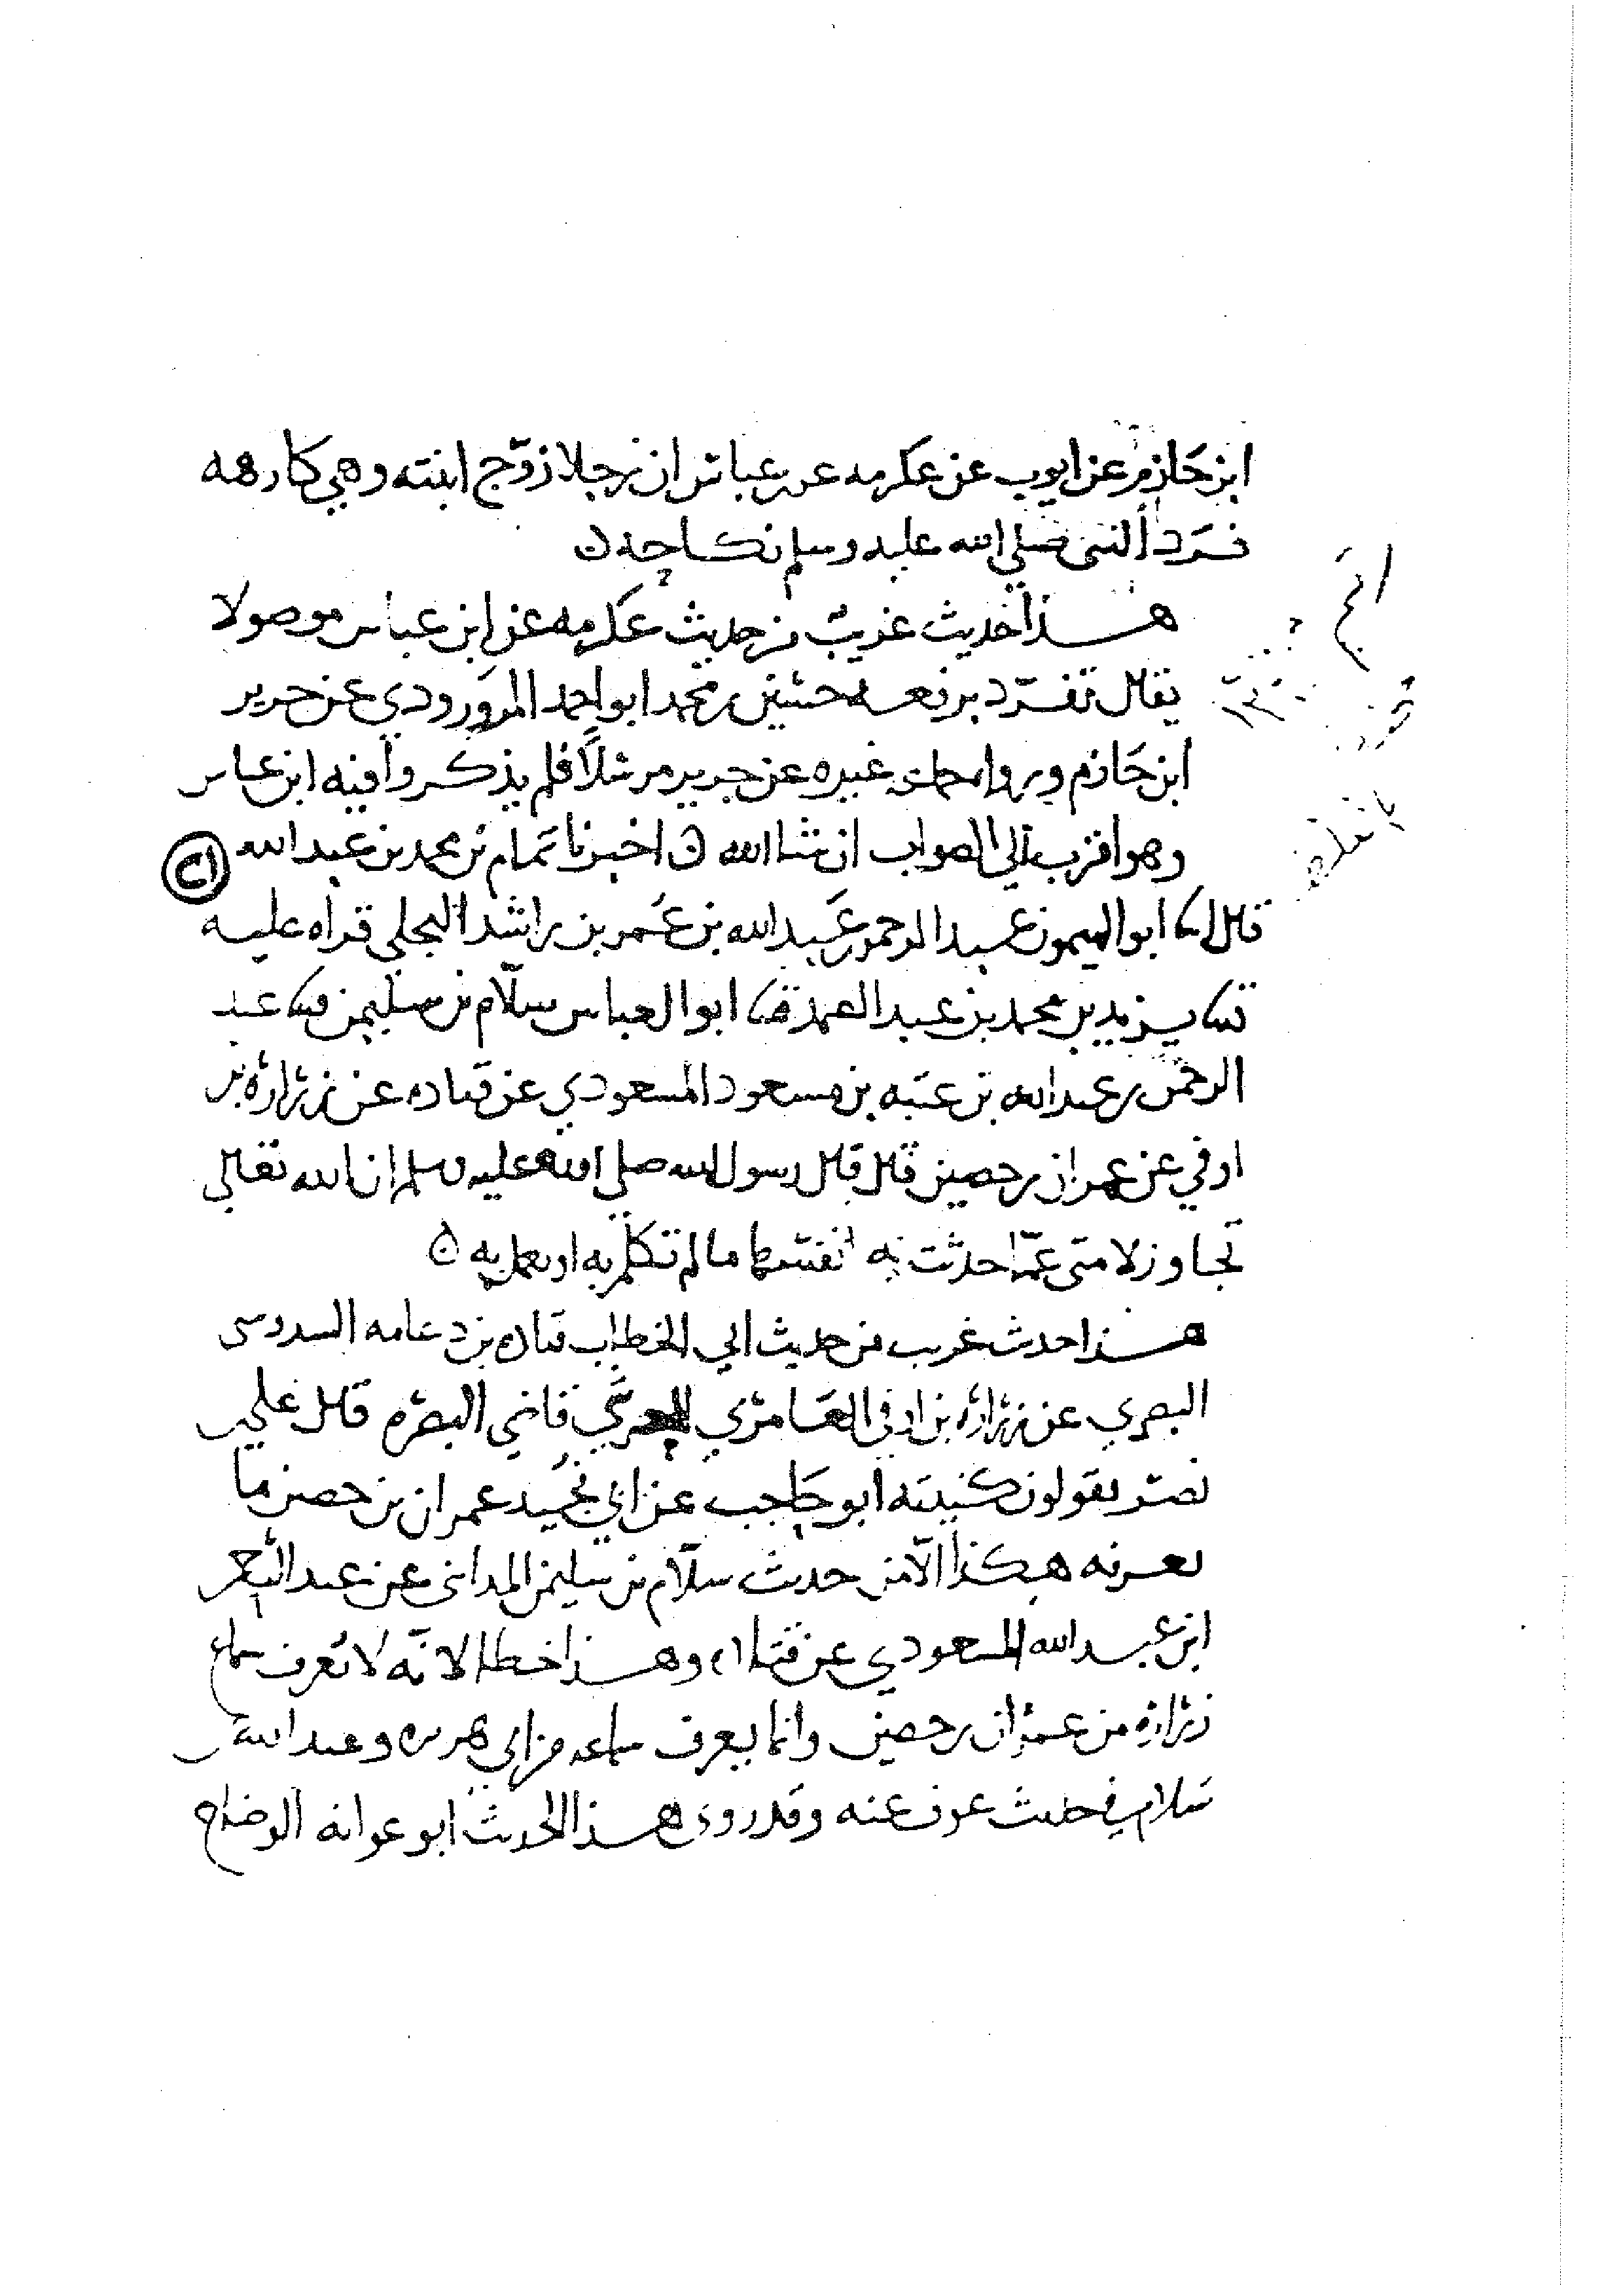 ابن حازم عن ايوب عن عكرمه عن ابن عباس ان رجلا زوّج ابنته وهي كارهه
فرد النبي صلي الله عليه وسلم نكاحه ن
هذا حديث غريب من حديث عكرمه عن ابن عباس موصولا
يقال تفرّد برفعه حسين بن محمد ابو احمد المروروذي عن جرير
ابن حازم ورواه غيره عن جرير مرسلاً فلم يذكروا فيه ابن عباس
وهو اقرب الي الصواب ان شا الله ن اخبرنا تمام بن محمد بن عبد الله
(٢١)
قال انا ابو الميمون عبد الرحمن بن عبد الله بن عُمر بن راشد البجلي قراه عليه
ثنا يزيد بن محمد بن عبد الصمد ثنا ابو العباس سلّام بن سليمن ثنا عبد
الرحمن بن عبد الله بن عتبه بن مسعود المسعودي عن قتاده عن زراره بن
اوفي عن عمران بن حصين قال قال رسول الله صلي الله عليه وسلم ان الله تعالي
تجاوز لامتي عمّا حدثت به انفسها ما لم تكلم به او يعمل به ن
هذا حديث غريب من حديث ابي الخطاب قتاده بن دعامه السدوسي
البصري عن زراره بن اوفي العامري الحرشي قاضي البصره قال علي بن
نصر يقولون كنيته ابو حاجب عن ابي نجُيد عمران بن حصين ما
نعرفه هكذا الّا من حديث سلّام بن سليمن المدايني عن عبد الرحمن
ابن عبد الله المسعودي عن قتاده وهذا خطا لانّه لا يُعرف سماع
زراره من عمران بن حصين وانما يعرف سماعه من ابي هريره وعبد الله بن
سلام في حديث عوف عنه وقد روي هذا الحديث ابو عوانه الوضاح